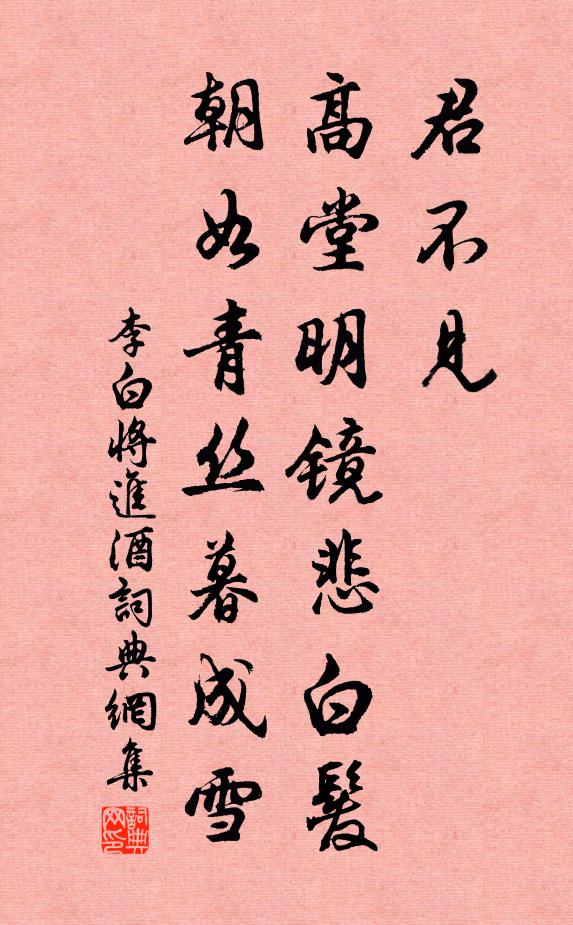 君不见
高堂明镜悲白髮
朝如青丝暮成雪
李白將進酒詞典網集
詞典网印